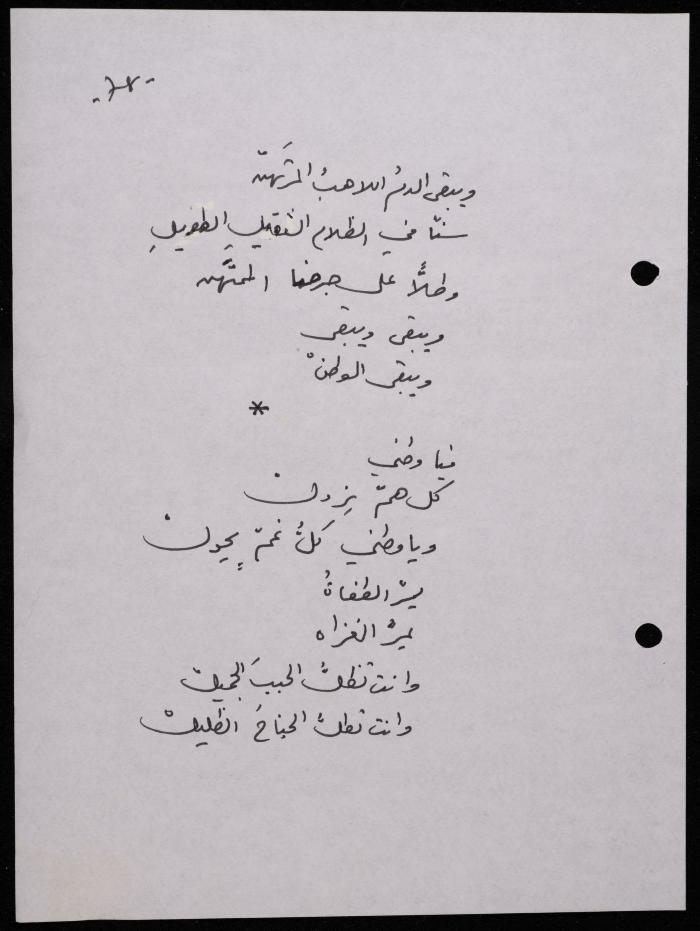 ويبقى الدمُ اللاهبُ المرتَهنْ
سنًا في الظلام الثقيلِ الطويلِ
وطلًّا على جرحنا الممتَهن
ويبقى ويبقى
ويبقى الوطنْ
*
فيا وطني
كل همّ يزولْ
ويا وطني كلُّ غمّ يحولْ
يمرّ الطغاةُ
يمرّ الغزاه
وانت تظلُّ الحبيبَ الجميلْ
وانت تظلُّ الجناحَ الظليلْ